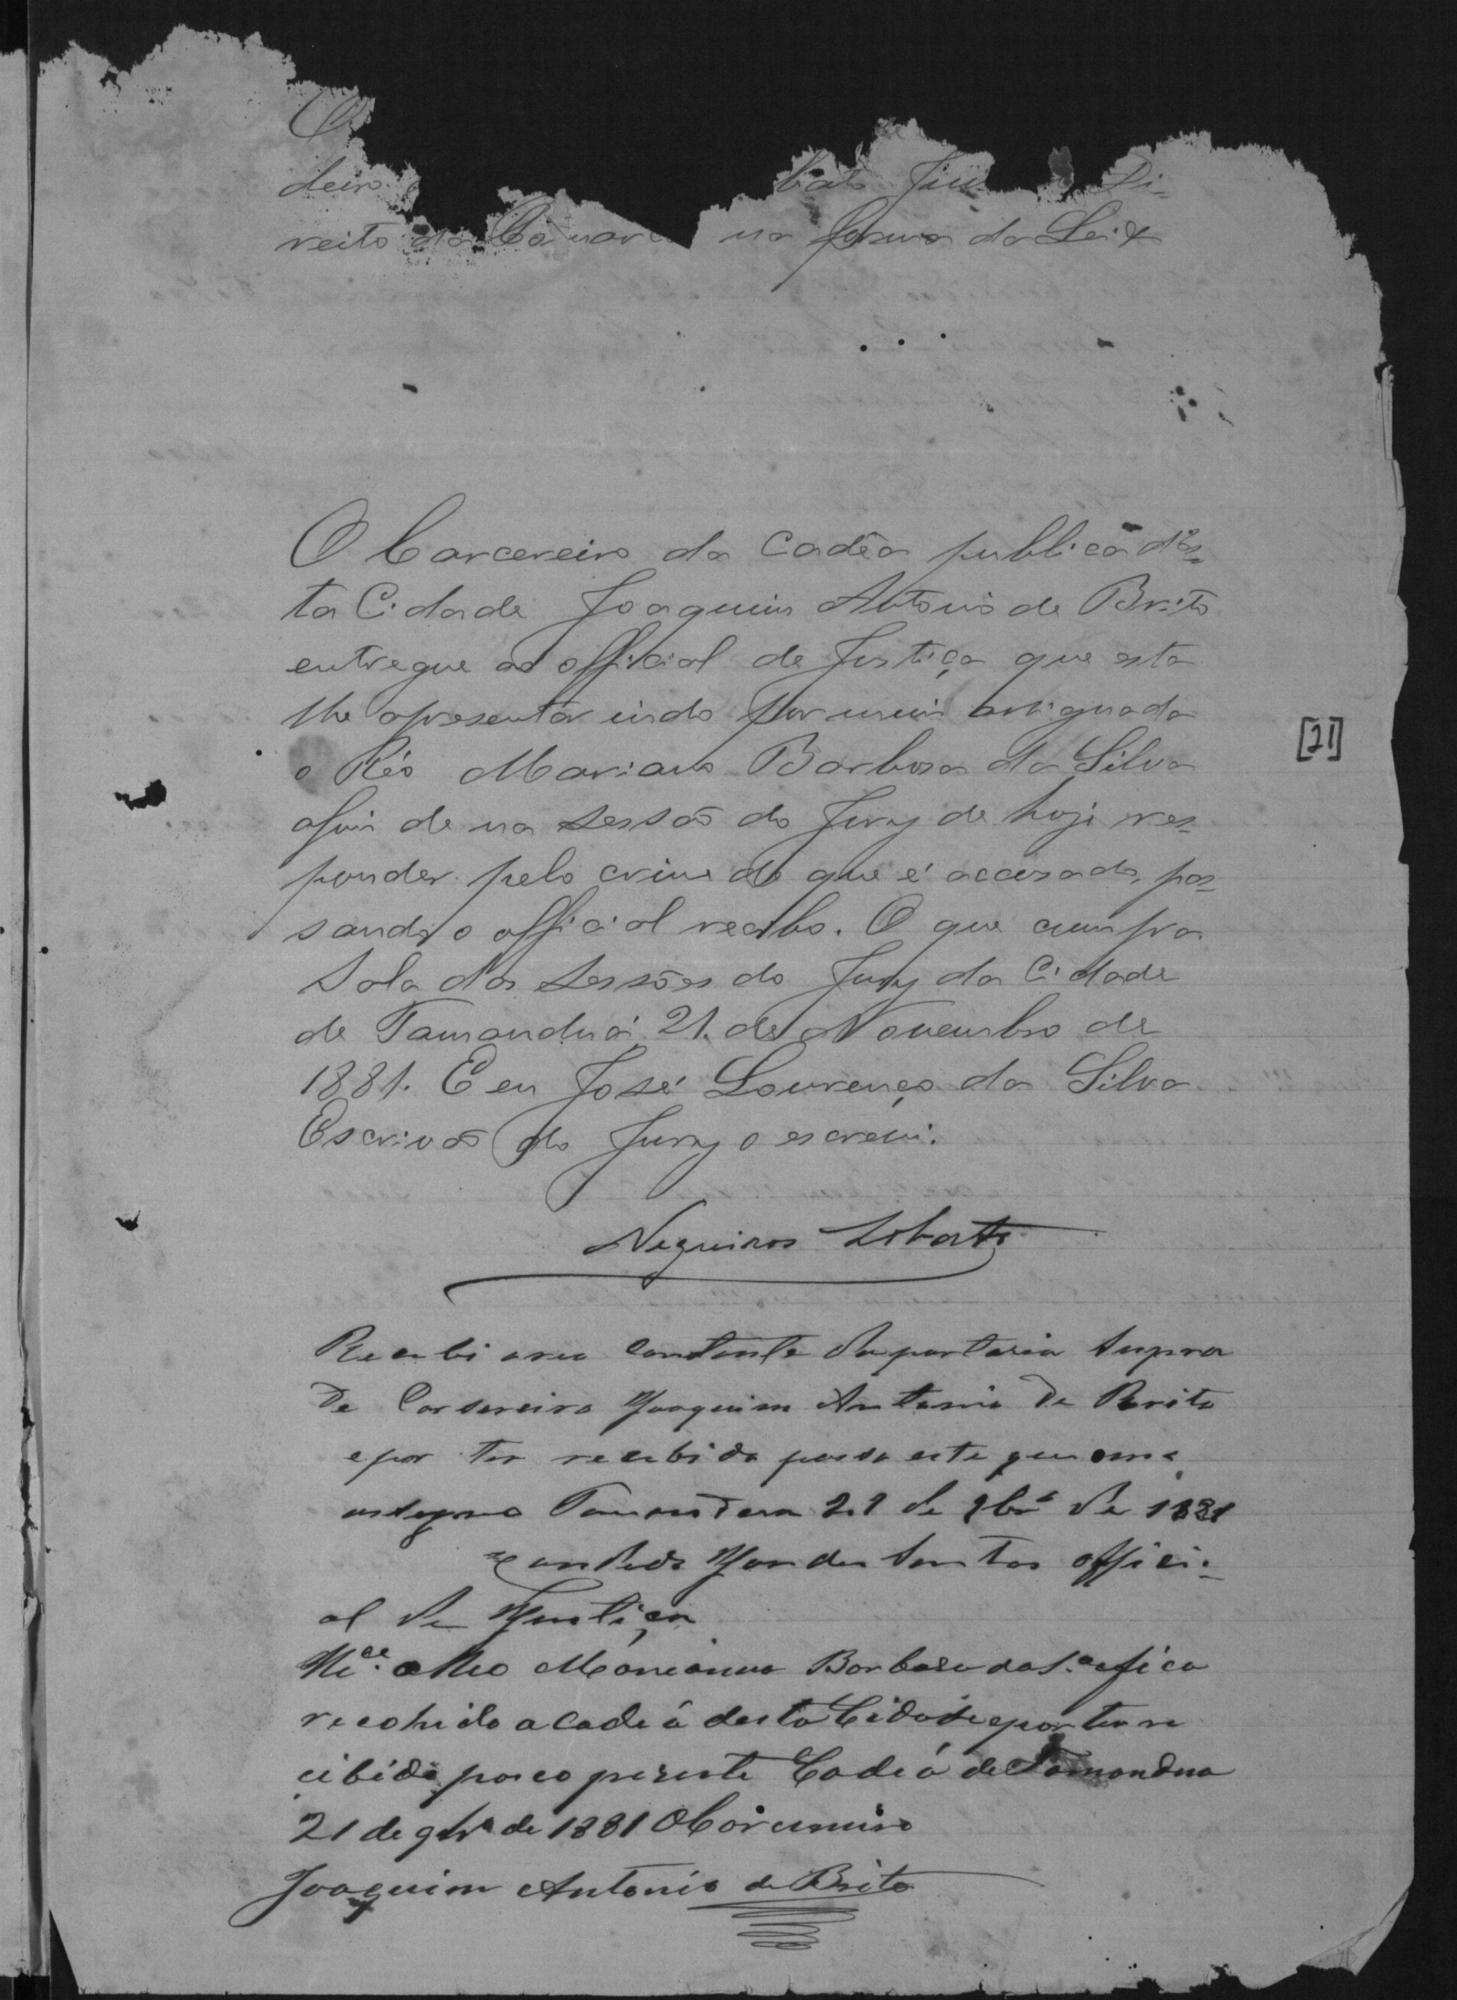 O
deiro bato Juiz Di-
reito da Comarca na forma da Lei &
O Carcereiro da Cadêa publica d'es-
ta Cidade Joaquim Antonio de Brito
entregue ao official de Justiça que esta
lhe apresentar indo por mim assignada
o Réo Mariano Barbosa da Silva
afim de na sessão do Jury de hoje res-
ponder pelo crime do que é accusado, pas-
sando o official recibo. O que cumpra.
Sala das Sessões do Jury da Cidade
de Tamanduá 21 de Novembro de
1881. E eu José Lourenço da Silva
Escrivão do Jury o escrevi.
Negueiros Lobato
[21]
Recebi oreu constante da portaria supra
De Carsereiro Joaquim Antonio De Brito
epor ter recebido passo este que ome
asigno Tamandua 21 de 9br.º de 1881
Candido Mendes Santos offici-
al de Justiça
o Reo Marianno Barboza da S.ª e fica
recohido a cadeá desta Cidade epor ter re
cibido paço o prezente Cadeá de Tamandua
21 de 9brº de 1881 O Carcereiro
Joaquim Antonio de Brito